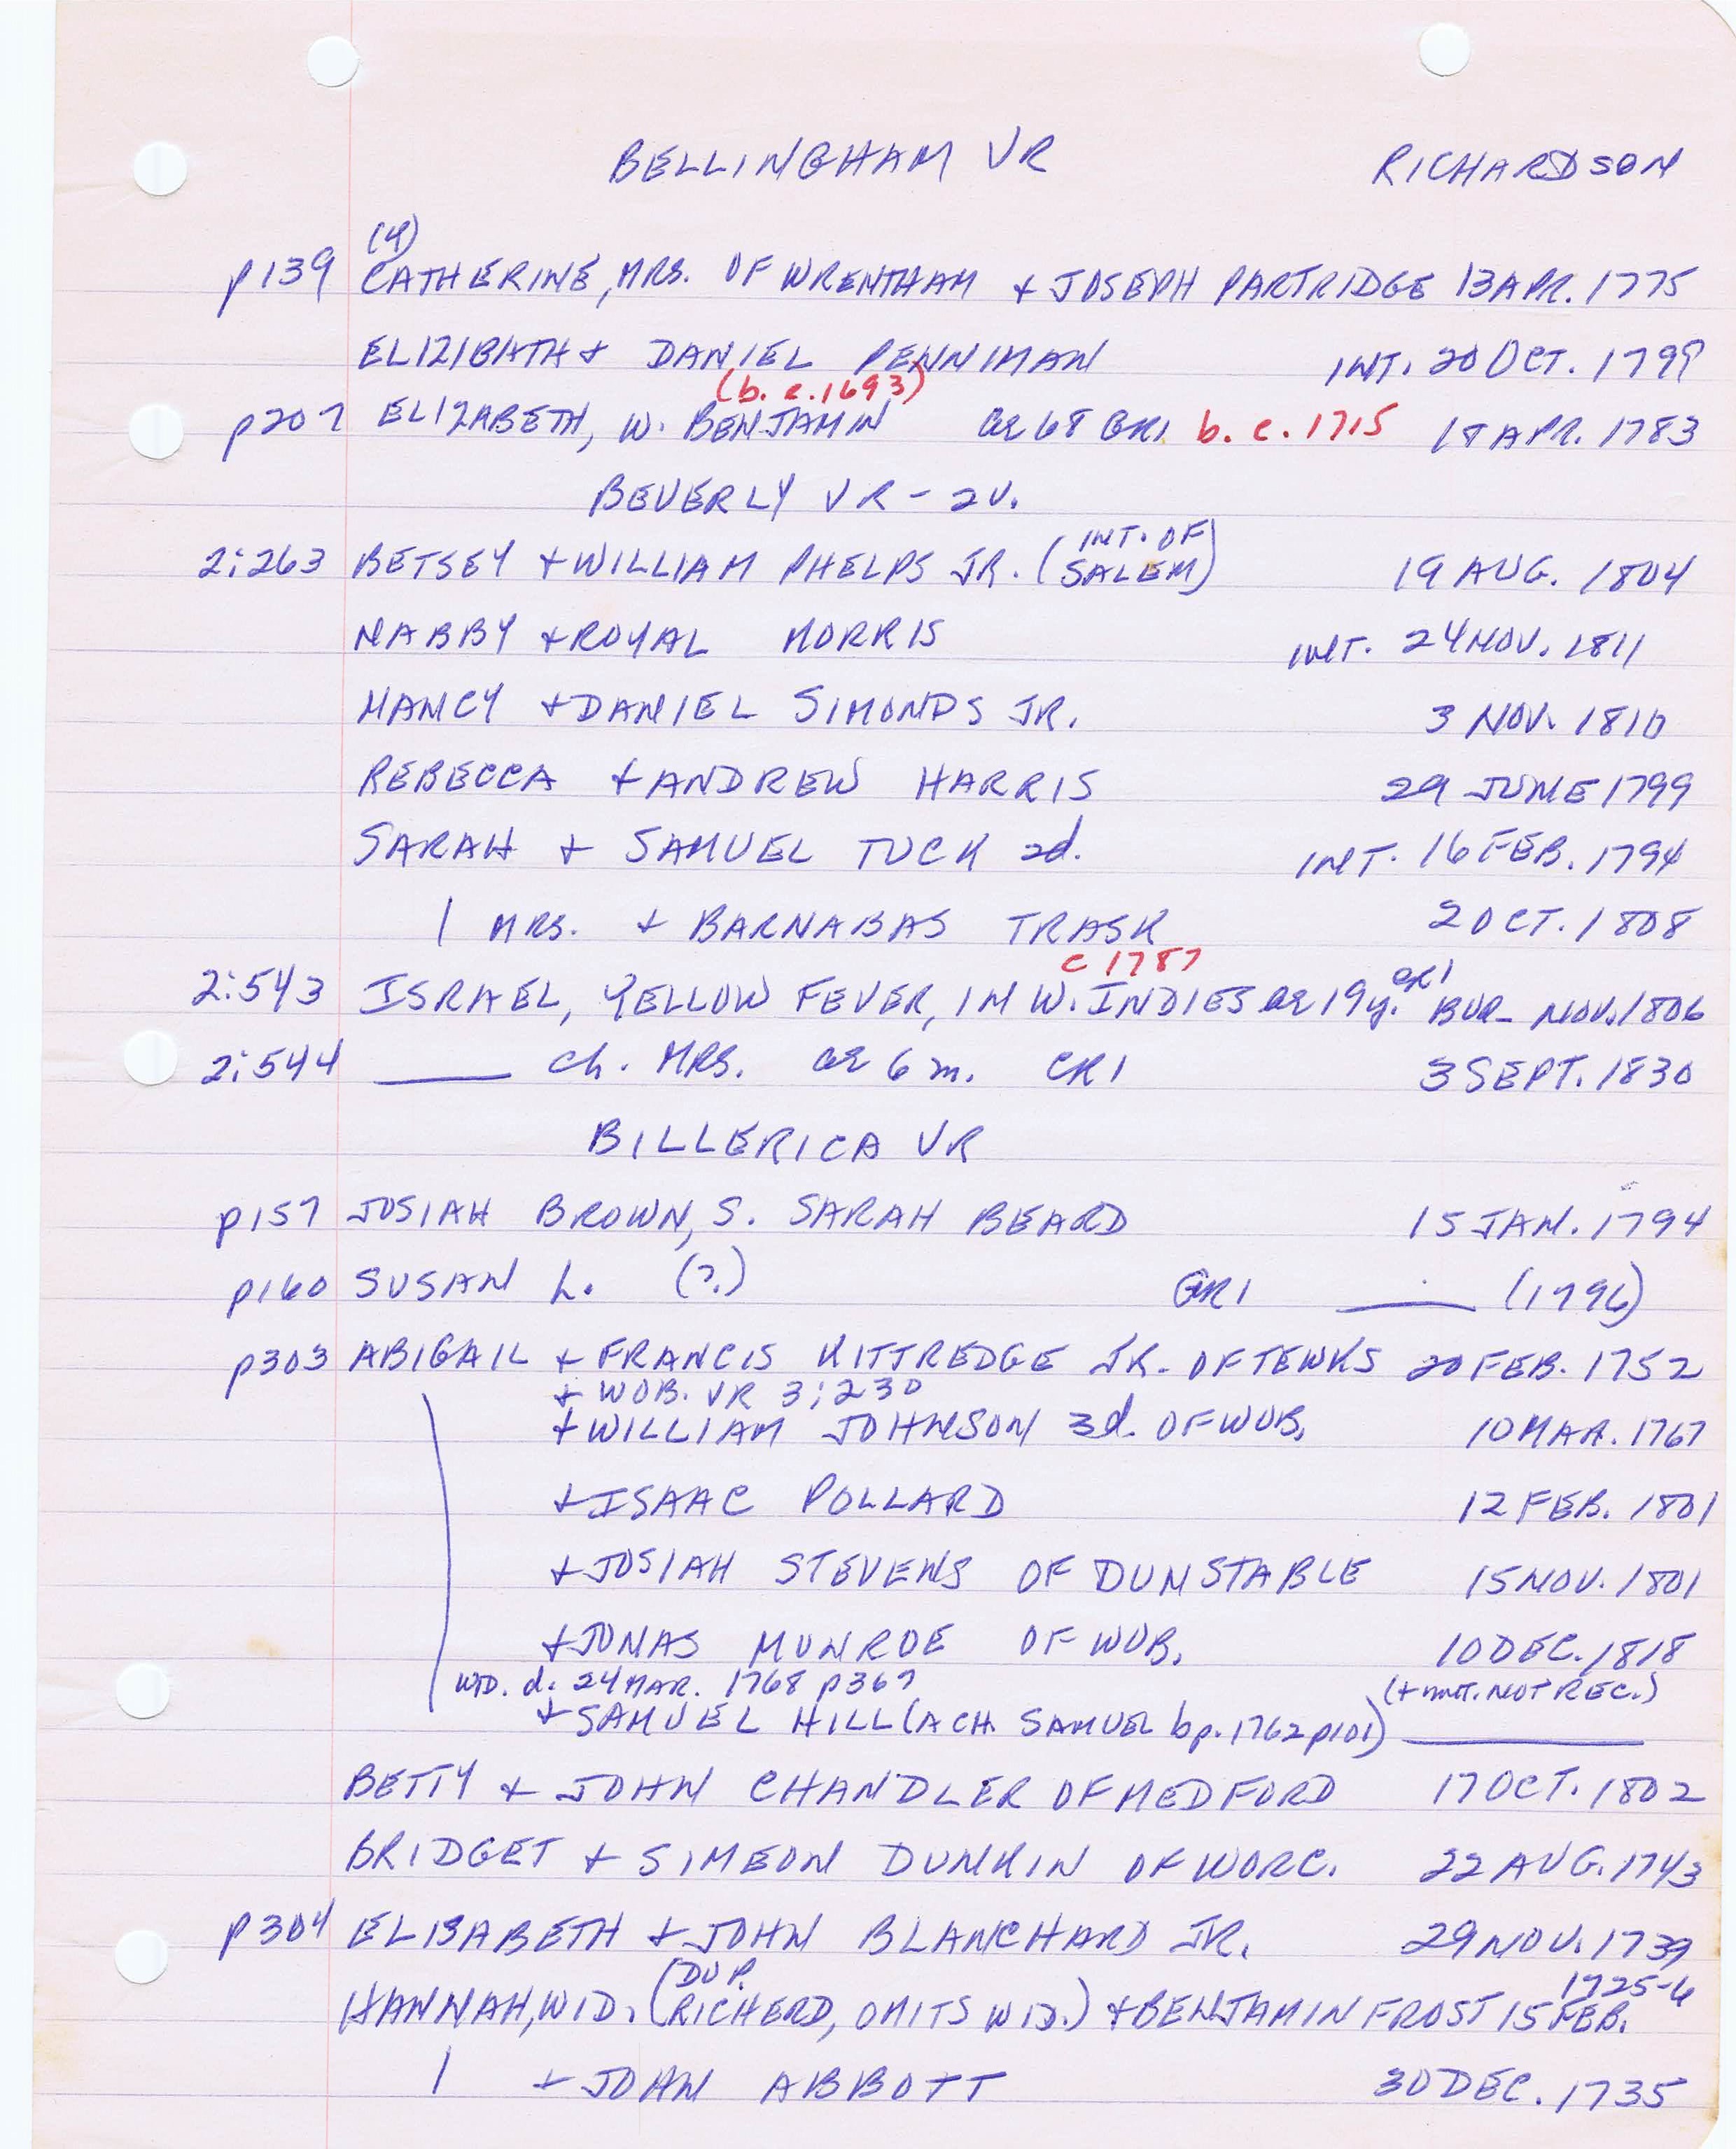 BELLINGHAM VR RICHARDSON
(4)
p139 CATHERINE, MRS. OF WRENTHAM + JOSEPH PARTRIDGE 13 APR. 1775
ELIZIBATH + DANIEL PENNIMAN INT. 20 OCT. 1799
(b. c. 1693)
p207 ELIZABETH, W. BENJAMIN ae 68 GR1 b. c. 1715 18 APR. 1783
BEVERLY VR - 2V.
INT. OF
2:263 BETSEY + WILLIAM PHELPS JR. (SALEM) 19 AUG. 1804
NABBY + ROYAL MORRIS INT. 24 NOV. 1811
NANCY + DANIEL SIMONDS JR. 3 NOV. 1810
REBECCA + ANDREW HARRIS 29 JUNE 1799
SARAH + SAMUEL TUCK 2d. INT. 16 FEB. 1794
| MRS. + BARNABAS TRASK 2 OCT. 1808
c 1787
2:543 ISRAEL, YELLOW FEVER, IN W. INDIES ae 19 y. CR1 BUR. NOV. 1806
2:544 ____ ch. MRS. ae 6 m. CR1 3 SEPT. 1830
BILLERICA VR
p157 JOSIAH BROWN, S. SARAH BEARD 15 JAN. 1794
p160 SUSAN L. (?) GR1 ____ (1796)
p303 ABIGAIL + FRANCIS KITTREDGE JR. OF TEWKS 20 FEB. 1752
+ WOB. VR 3:230
+ WILLIAM JOHNSON 3d. OF WOB. 10 MAR. 1767
+ ISAAC POLLARD 12 FEB. 1801
+ JOSIAH STEVENS OF DUNSTABLE 15 NOV. 1801
+ JONAS MUNROE OF WOB. 10 DEC. 1818
WID. d. 24 MAR. 1768 p367 (+ INT. NOT REC.)
+ SAMUEL HILL (A CH. SAMUEL bp. 1762 p101) ____
BETTY + JOHN CHANDLER OF MEDFORD 17 OCT. 1802
BRIDGET + SIMEON DUNKIN OF WORC. 22 AUG. 1743
p304 ELISABETH + JOHN BLANCHARD JR. 29 NOV. 1739
(DUP. 1725-6
HANNAH, WID. (RICHERD, OMITS WID.) + BENJAMIN FROST 15 FEB.
| + JOHN ABBOTT 30 DEC. 1735